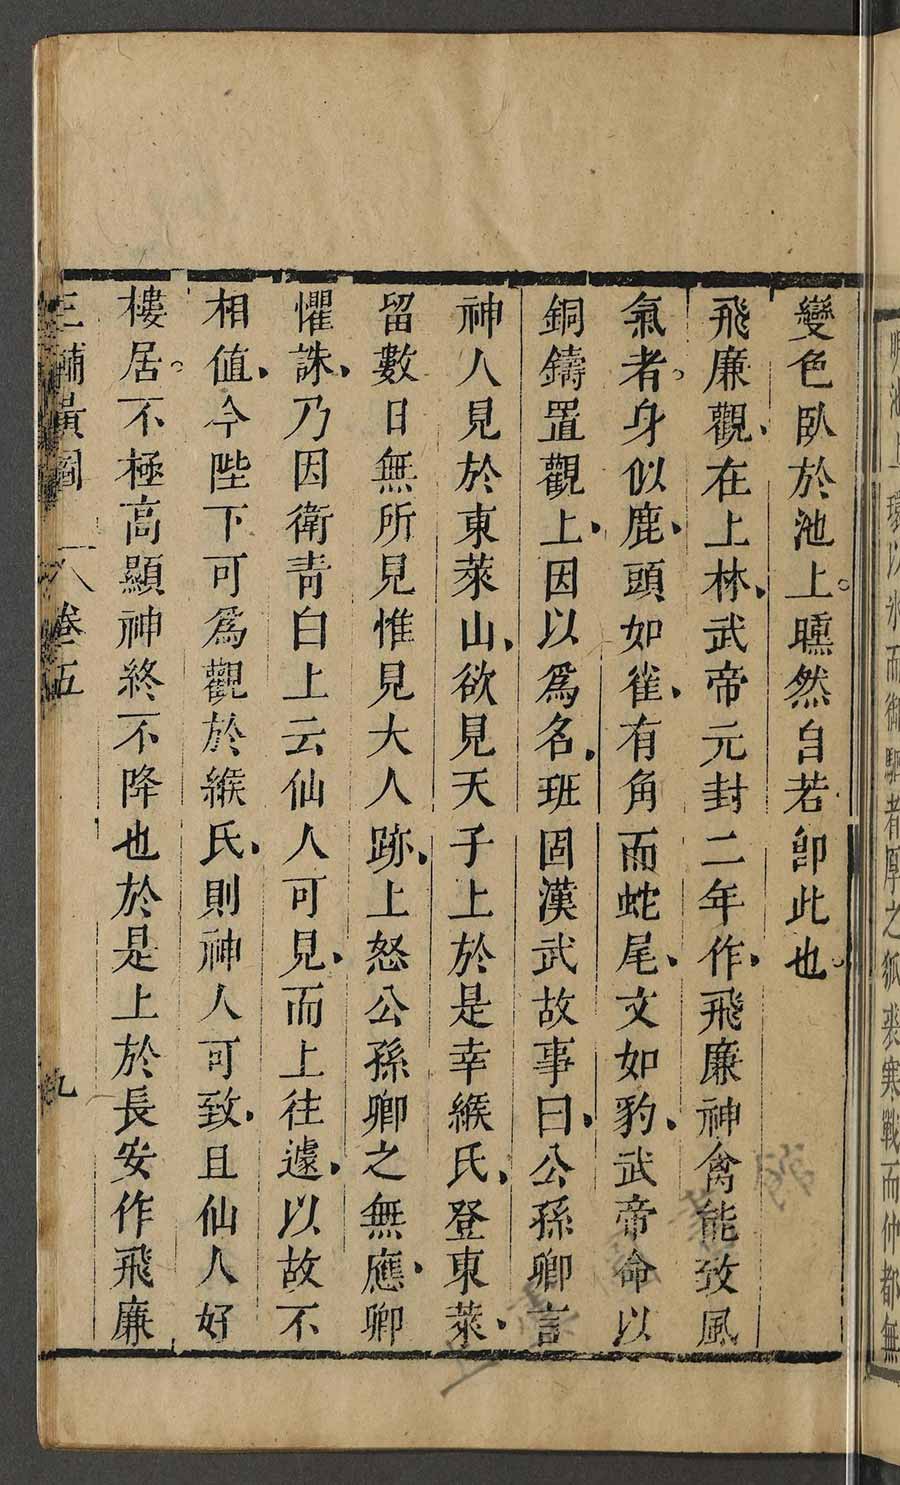 明池上環以冰而御駟者厚之狐裘寒戰而仲都無
變色臥於池上曛然自若卽此也。
飛廉觀、在上林、武帝元封二年作、飛廉神禽能致風
氣者。身似鹿、頭如雀、有角而蛇尾、文如豹、武帝命以
銅鑄置觀上、因以爲名、班固漢武故事曰、公孫卿言
神人見於東萊山、欲見天子上於是幸緱氏、登東萊、
留數日無所見惟見大人跡、上怒公孫卿之無應、卿
懼誅、乃因衛青白上云仙人可見、而上往遽、以故不
相值、今陛下可爲觀於緱氏、則神人可致、且仙人好
樓居。不極高顯神終不降也於是上於長安作飛廉
三輔黃圖 卷五 九